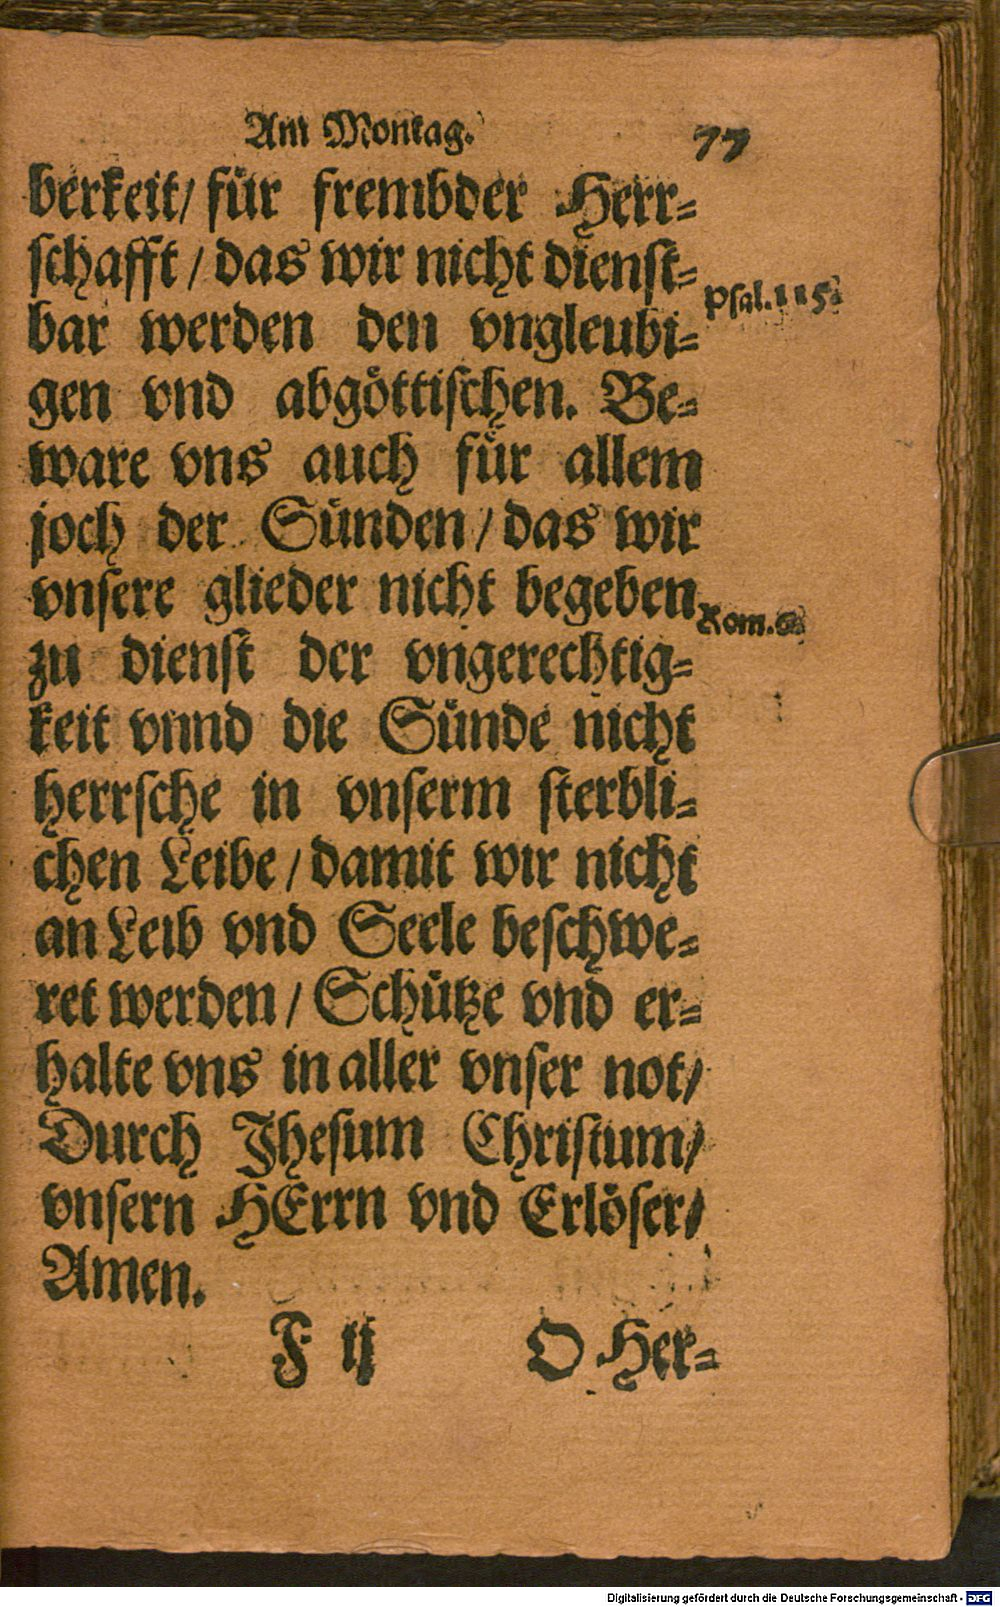 Am Montag. 77
berkeit/ für frembder Herr⸗
schafft / das wir nicht dienst⸗
Psal. 115.
bar werden den vngleubi⸗
gen vnd abgöttischen. Be⸗
ware vns auch für allem
joch der Sünden / das wir
vnsere glieder nicht begeben
Rom. 6.
zu dienst der vngerechtig⸗
keit vnnd die Sünde nicht
herrsche in vnserm sterbli⸗
chen Leibe / damit wir nicht
an Leib vnd Seele beschwe⸗
ret werden / Schütze vnd er⸗
halte vns in aller vnser not/
Durch Jhesum Christum/
vnsern HErrn vnd Erlöser/
Amen.
F ij O Her⸗
Digitalisierung gefördert durch die Deutsche Forschungsgemeinschaft - DFG